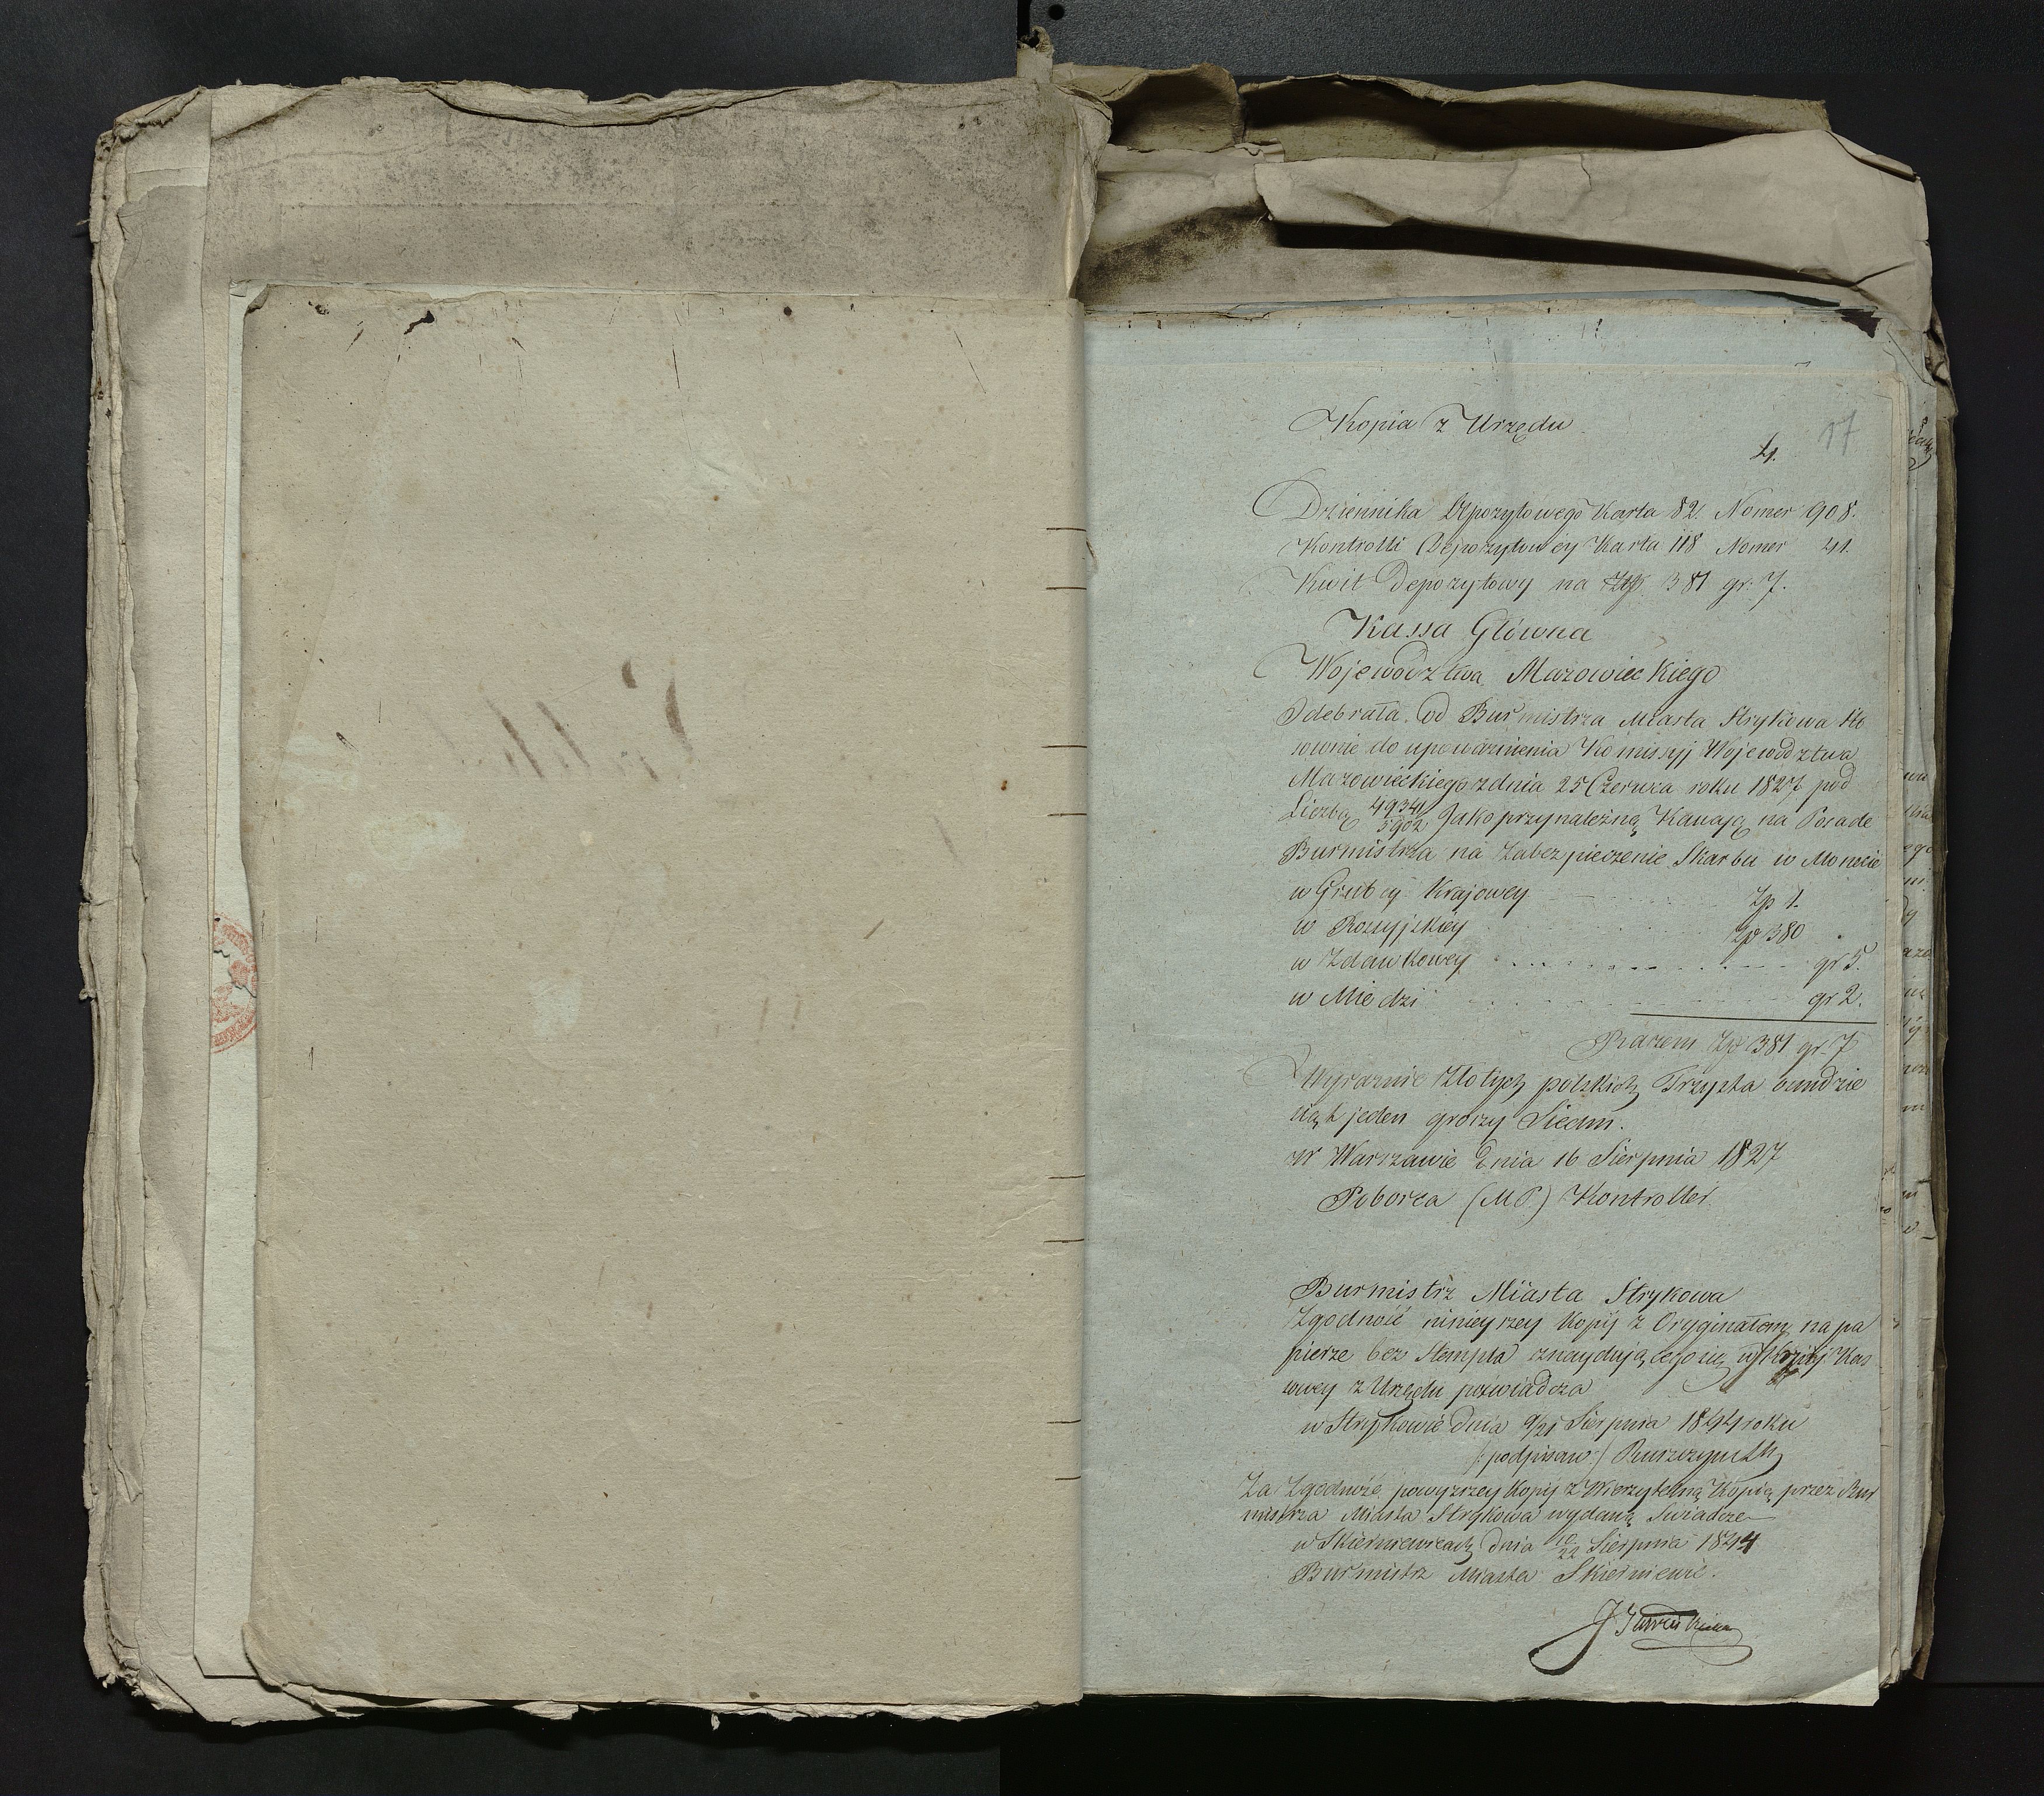 Kopia z Urzędu
17
4.
Dziennika Depozytowego Karta 82. Nomer 908.
Kontrolli Depozytowey Karta 118 Nomer 41.
Kwit Depozytowy na Złp. 381 gr. 7.
Kassa Główna
Województwa Mazowieckiego
Odebrała od Burmistrza Miasta Strykowa Sto
sownie do upoważnienia Kommissyj Województwa
Mazowieckiego z dnia 25 Czerwca roku 1827 pod
Liczbą 4934/5902 Jako przynależną Kaucją na Posade
Burmistrza na Zabezpieczenie Skarbu w Monecie
w Grubey Krajowey Zp 1.
w Rossyjskiey Zp 380
w Zdawkowey gr 5.
w Miedzi gr 2.
Razem Zp 381 gr. 7
Wyraznie Złotych polskich Trzysta osmdzie
siąt jeden groszy Siedm.
w Warszawie Dnia 16 Sierpnia 1827
Poborca (M.P.) Kontroller
Burmistrz Miasta Strykowa
Zgodność ninieyszey Kopij z Oryginałem na pa
pierze bez Stempla znaydującego się Kas
sowey z Urzędu poświadcza
w Strykowie Dnia 9/21 Sierpnia 1844 roku
/: podpisano :/
Za Zgodność powyższey Kopij z Wierzytelną Kopią przez Bur
mistrza Miasta Strykowa wydaną Swiadcze
w Skierniewicach dnia 10/22 Sierpnia 1844
Burmistrz Miasta Skierniewic.